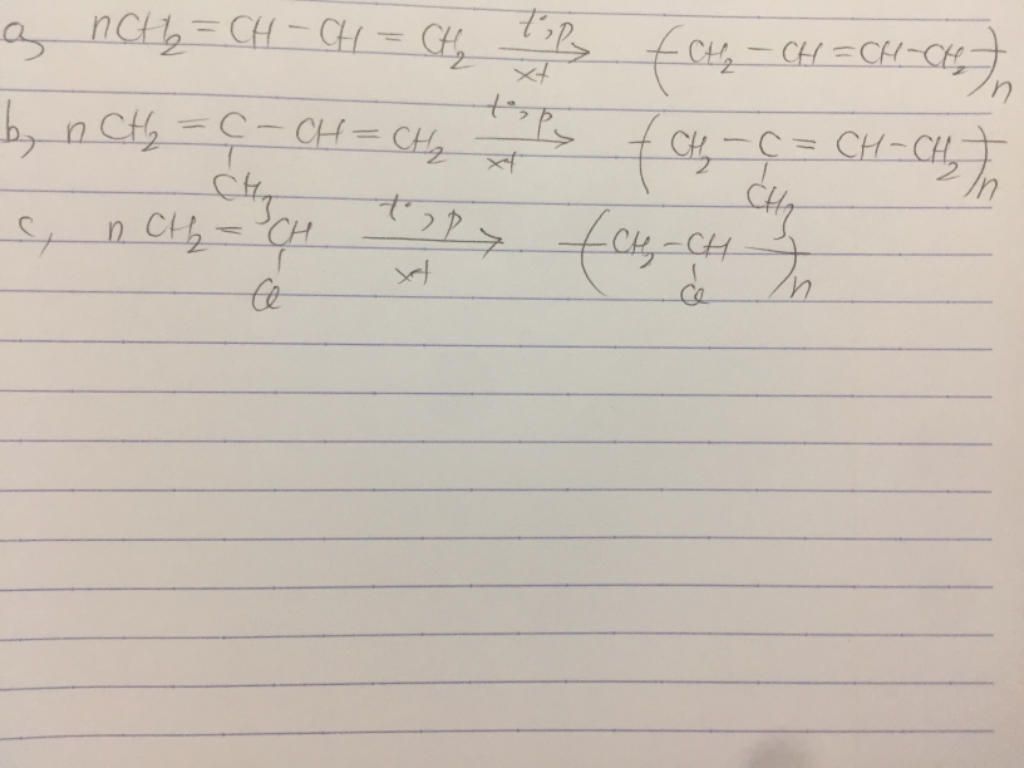 a, nCH₂ = CH - CH = CH₂ \xrightarrow[xt]{t°, p} (CH₂ - CH = CH - CH₂)ₙ
b, nCH₂ = C(CH₃) - CH = CH₂ \xrightarrow[xt]{t°, p} (CH₂ - C(CH₃) = CH - CH₂)ₙ
c, nCH₂ = CH(Cl) \xrightarrow[xt]{t°, p} (CH₂ - CH(Cl))ₙ